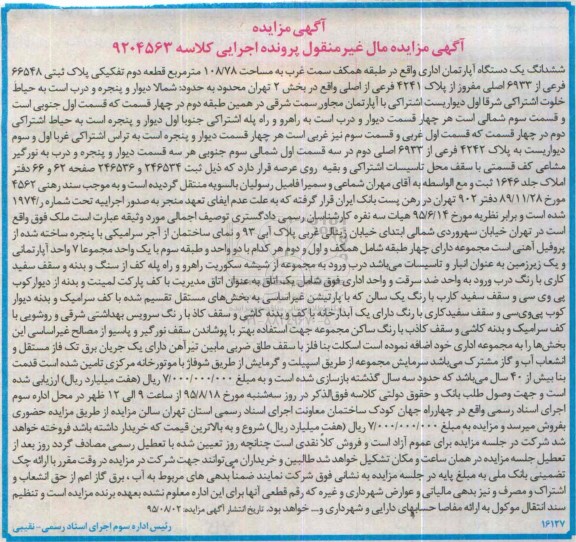 آگهی مزایده
آگهی مزایده مال غیرمنقول پرونده اجرایی کلاسه ۹۲۰۴۵۶۳
ششدانگ یک دستگاه آپارتمان اداری واقع در طبقه همکف سمت غرب به مساحت ۱۰۸/۷۸ مترمربع قطعه دوم تفکیکی پلاک ثبتی ۶۶۵۴۸
فرعی از ۶۹۳۳ اصلی مفروز از پلاک ۴۲۴۱ فرعی از اصلی واقع در بخش ۲ تهران محدود به حدود: شمالا دیوار و پنجره و درب است به حیاط
خلوت اشتراکی شرقا اول دیواریست اشتراکی با آپارتمان مجاور سمت شرقی در همین طبقه دوم در چهار قسمت که قسمت اول جنوبی است
و قسمت سوم شمالی است هر چهار قسمت دیوار و درب است به راهرو و راه پله اشتراکی جنوبا اول دیوار و پنجره است به حیاط اشتراکی
دوم در چهار قسمت که قسمت اول غربی و قسمت سوم نیز غربی است هر چهار قسمت دیوار و پنجره است به تراس اشتراکی غربا اول و سوم
دیواریست به پلاک ۴۲۴۲ فرعی از ۶۹۳۳ اصلی دوم در سه قسمت اول شمالی سوم جنوبی هر سه قسمت دیوار و پنجره و درب به نورگیر
مشاعی کف قسمتی با سقف محل تاسیسات اشتراکی و بقیه روی عرصه قرار دارد که ذیل ثبت ۲۴۶۵۳۴ و ۲۴۶۵۳۶ صفحه ۶۲ و ۶۶ دفتر
املاک جلد ۱۶۴۶ ثبت و مع الواسطه به آقای مهران شماعی و سمیرا فامیل رسولیان بالسویه منتقل گردیده است و به موجب سند رهنی ۴۵۶۲
مورخ ۸۹/۱۱/۲۸ دفتر ۹۰۲ تهران در رهن پست بانک ایران قرار گرفته که به علت عدم ایفای تعهد منجر به صدور اجراییه تحت شماره ر/۱۹۷۴
شده است و برابر نظریه مورخ ۹۵/۶/۱۴ هیات سه نفره کارشناسان رسمی دادگستری توصیف اجمالی مورد وثیقه عبارت است ملک فوق واقع
است در تهران خیابان سهروردی شمالی ابتدای خیابان زینالی غربی پلاک آبی ۹۳ و نمای ساختمان از آجر سرامیکی با پنجره ساخته شده از
پروفیل آهنی است مجموعه دارای چهار طبقه شامل همکف و اول و دوم هر کدام با دو واحد و طبقه سوم با یک واحد مجموعا ۷ واحد آپارتمانی
و یک زیرزمین به عنوان انبار و تاسیسات می‌باشد درب ورود به مجموعه از شیشه سکوریت راهرو و راه پله کف از سنگ و بدنه و سقف سفید
کاری با رنگ درب ورود به واحد ضد سرقت و واحد اداری فوق شامل یک اتاق به عنوان اتاق مدیریت با کف پارکت لمینت و بدنه از دیوار کوب
پی وی سی و سقف سفید کاری با رنگ یک سالن که با پارتیشن غیراساسی به بخش‌های مستقل تقسیم شده با کف سرامیک و بدنه دیوار
کوب پی‌وی‌سی و سقف سفیدکاری با رنگ دارای یک آبدارخانه با کف و بدنه کاشی و سقف کاذ با رنگ سرویس بهداشتی شرقی و روشویی با
کف سرامیک و بدنه کاشی و سقف کاذب با رنگ ساکن مجموعه جهت استفاده بهتر با پوشاندن سقف نورگیر و پاسیو از مصالح غیراساسی این
بخش‌ها را به مجموعه اداری خود اضافه نموده است اسکلت بنا فلز با سقف طاق ضربی مابین تیرآهن دارای یک جریان برق تک فاز مستقل و
انشعاب آب و گاز مشترک می‌باشد سرمایش مجموعه از طریق اسپیلت و گرمایش از طریق شوفاژ با موتورخانه مرکزی تامین شده است قدمت
بنا بیش از ۴۰ سال می‌باشد که حدود سه سال گذشته بازسازی شده است و به مبلغ ۷/۰۰۰/۰۰۰/۰۰۰ ریال (هفت میلیارد ریال) ارزیابی شده
است و جهت وصول طلب بانک و حقوق دولتی کلاسه فوق‌الذکر در روز سه‌شنبه مورخ ۹۵/۸/۱۸ از ساعت ۹ الی ۱۲ ظهر در محل اداره سوم
اجرای اسناد رسمی واقع در چهارراه جهان کودک ساختمان معاونت اجرای اسناد رسمی استان تهران سالن مزایده از طریق مزایده حضوری
بفروش میرسد و مزایده به مبلغ ۷/۰۰۰/۰۰۰/۰۰۰ ریال (هفت میلیارد ریال) شروع و به بالاترین قیمت که خریدار داشته باشد فروخته خواهد
شد شرکت در جلسه مزایده برای عموم آزاد است و فروش کلا نقدی است چنانچه روز تعیین شده با تعطیل رسمی مصادف گردد روز بعد از
تعطیل جلسه مزایده در همان ساعت و مکان تشکیل خواهد شد طالبین و خریداران می‌توانند جهت شرکت در مزایده در وقت مقرر با ارائه چک
تضمینی بانک ملی به مبلغ پایه در جلسه مزایده به نشانی فوق شرکت نمایند ضمناً بدهی های مربوط به آب ، برق گاز اعم از حق انشعاب و
اشتراک و مصرف و نیز بدهی مالیاتی و عوارض شهرداری و غیره که رقم قطعی آنها برای این اداره معلوم نشده بعهده برنده مزایده است و تنظیم
سند انتقال موکول به ارائه مفاصا حسابهای دارایی و شهرداری و... خواهد بود. تاریخ انتشار آگهی مزایده: ۹۵/۰۸/۰۲
۱۶۱۲۷ رئیس اداره سوم اجرای اسناد رسمی- نقیبی